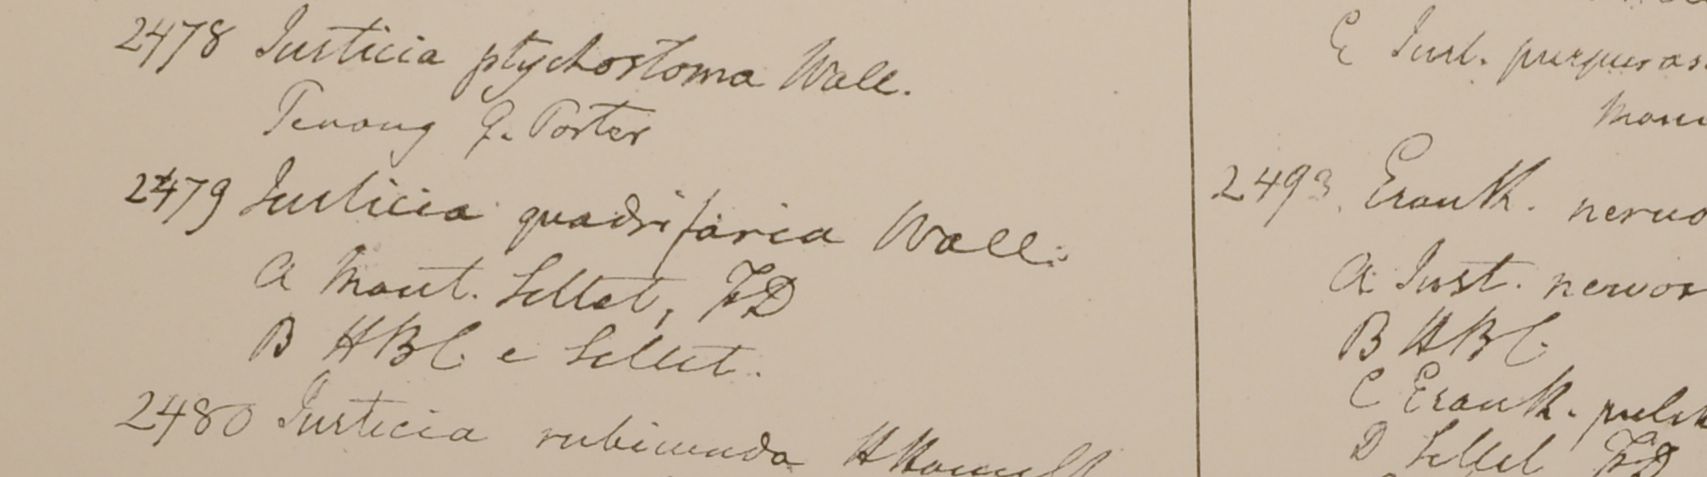 2478 Justicia ptychostoma Wall.
Penang G. Porter
2479 Justicia quadrifaria Wall.
a Mont. Sillet, FD
B HBC. e Sillet.
2480 Justicia rubicunda
E Just. purpuras
2493. Eranth. nervo
a Just. nervos
B HBC.
C Eranth. pulch
D Sillet FD